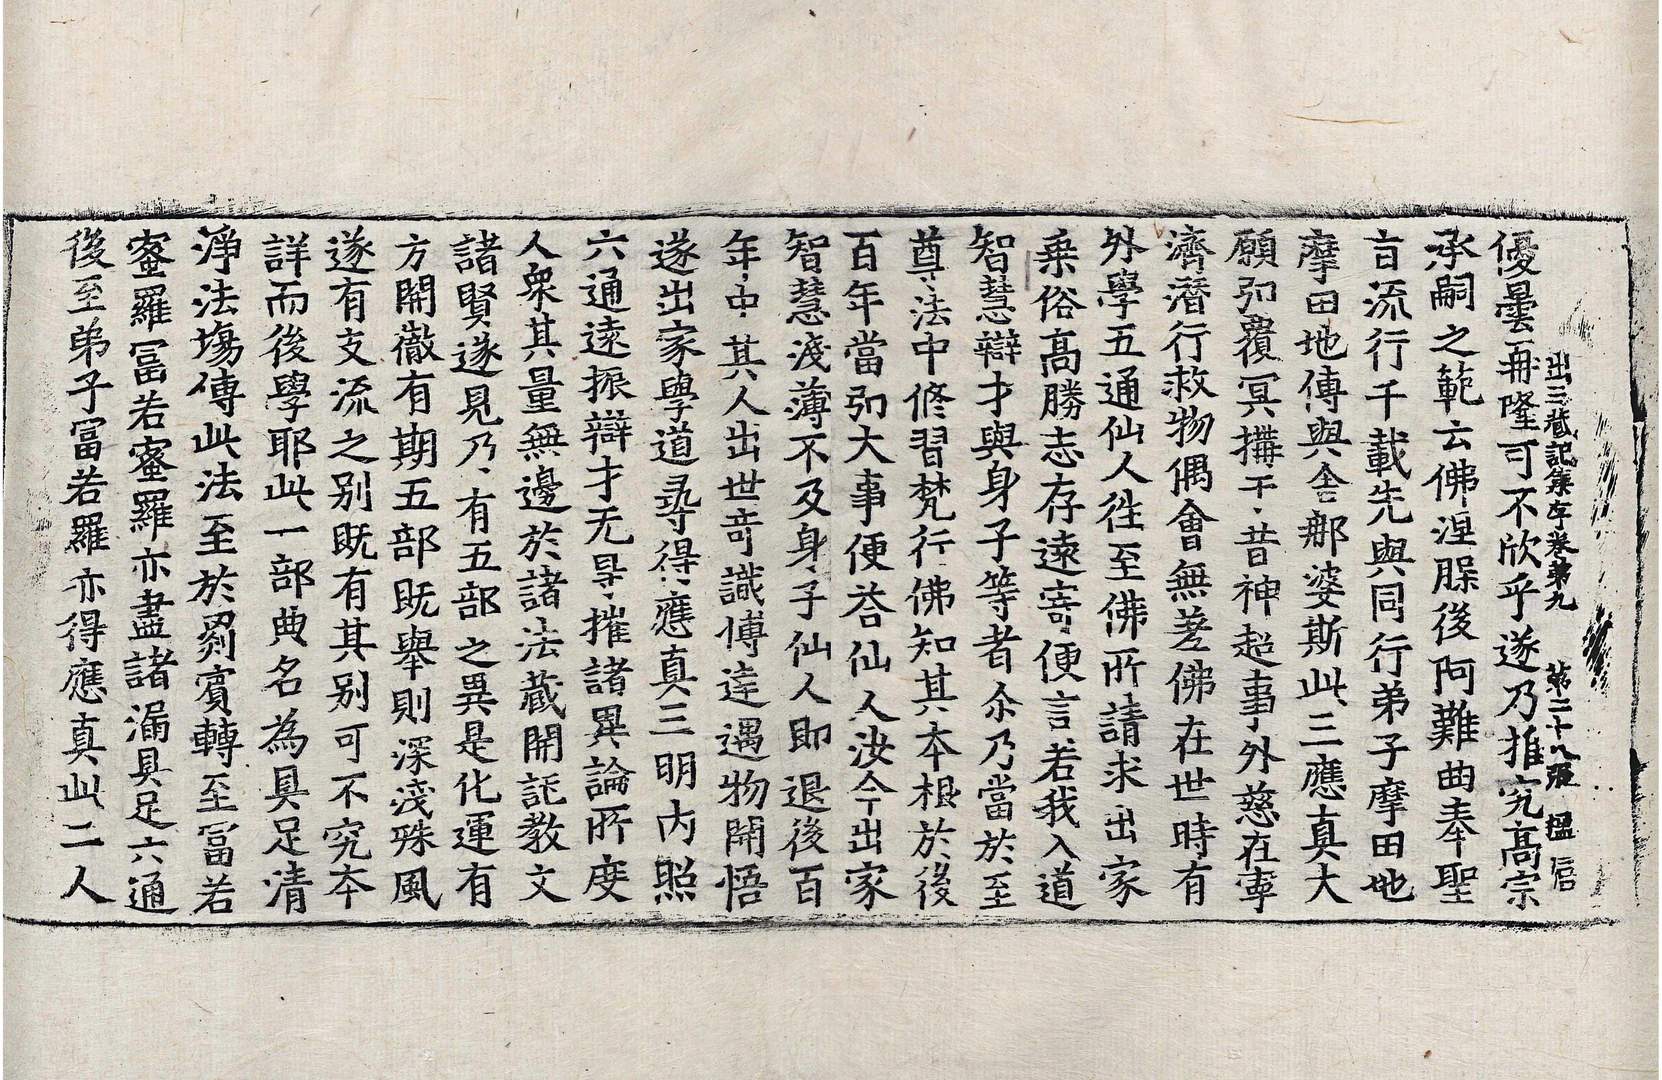 出三蔵記集序卷第九 第二十八張 
優曇再隆可不欣乎遂乃推究高宗
承嗣之範云佛涅槃後阿難曲奉聖
旨流行千載先與同行弟子摩田地
摩田地傳與舍那婆斯此三應真大
願弘覆冥搆于昔神超事外慈在寧
濟潛行救物偶會無差佛在世時有
外學五通仙人徃至佛所請求出家
乗俗高勝志存遠寄便言若我入道
智慧辯才與身子等者尒乃當於至
尊法中修習梵行佛知其本根於後
百年當弘大事便荅仙人汝今出家
智慧淺薄不及身子仙人即退後百
年中其人出世竒識博達遇物開悟
遂出家學道尋得應真三明内照
六通遠振辯才无㝵摧諸異論所度
人衆其量無邊於諸法藏開託教文
諸賢遂見乃有五部之異是化運有
方開徹有期五部既舉則深淺殊風
遂有支流之别既有其别可不究本
詳而後學耶此一部典名為具足清
淨法塲傳此法至於罽賓轉至冨若
蜜羅冨若蜜羅亦盡諸漏具足六通
後至弟子冨若羅亦得應真此二人